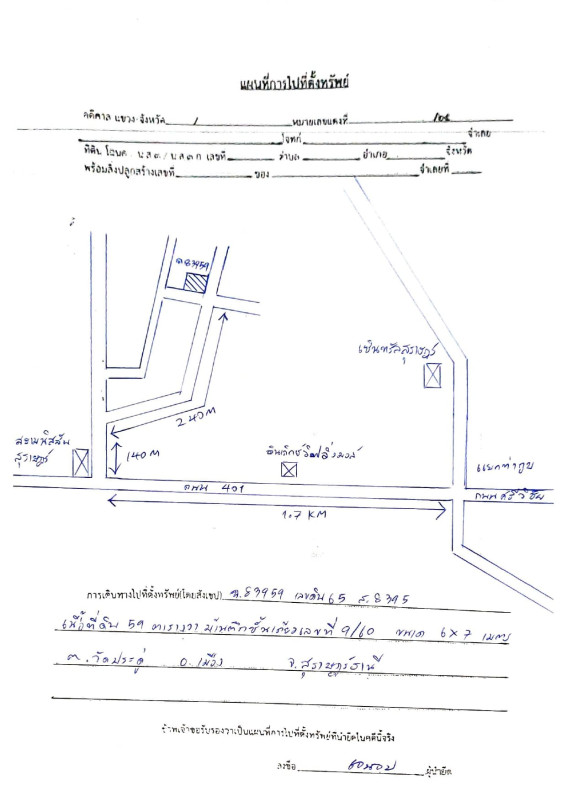 แผนที่การไปที่ตั้งทรัพย์
คดีศาล แขวง-จังหวัด / หมายเลขแดงที่
โจทก์ จำเลย
ที่ดิน โฉนด น.ส.๓/น.ส.๓ ก เลขที่ ตำบล อำเภอ จังหวัด
พร้อมสิ่งปลูกสร้างเลขที่ ของ จำเลยที่
ฉ.83959
เซ็นทรัลสุราษฎร์
240 M
สุราษฎร์
140 M
อินเด็กซ์ลิฟวิ่งมอลล์
แยกท่ากูบ
ถนน 401
ถนนศรีวิชัย
1.7 KM
การเดินทางไปที่ตั้งทรัพย์(โดยสังเขป) ฉ.83959 เลขดิน 65 ส.8395
เนื้อที่ดิน 59 ตารางวา บ้านตึกชั้นเดียวเลขที่ 9/60 ขนาด 6x7 เมตร
ต.วัดประดู่ อ.เมือง จ.สุราษฎร์ธานี
ข้าพเจ้าขอรับรองว่าเป็นแผนที่การไปที่ตั้งทรัพย์ที่นำยึดในคดีนี้จริง
ลงชื่อ ผู้นำยึด